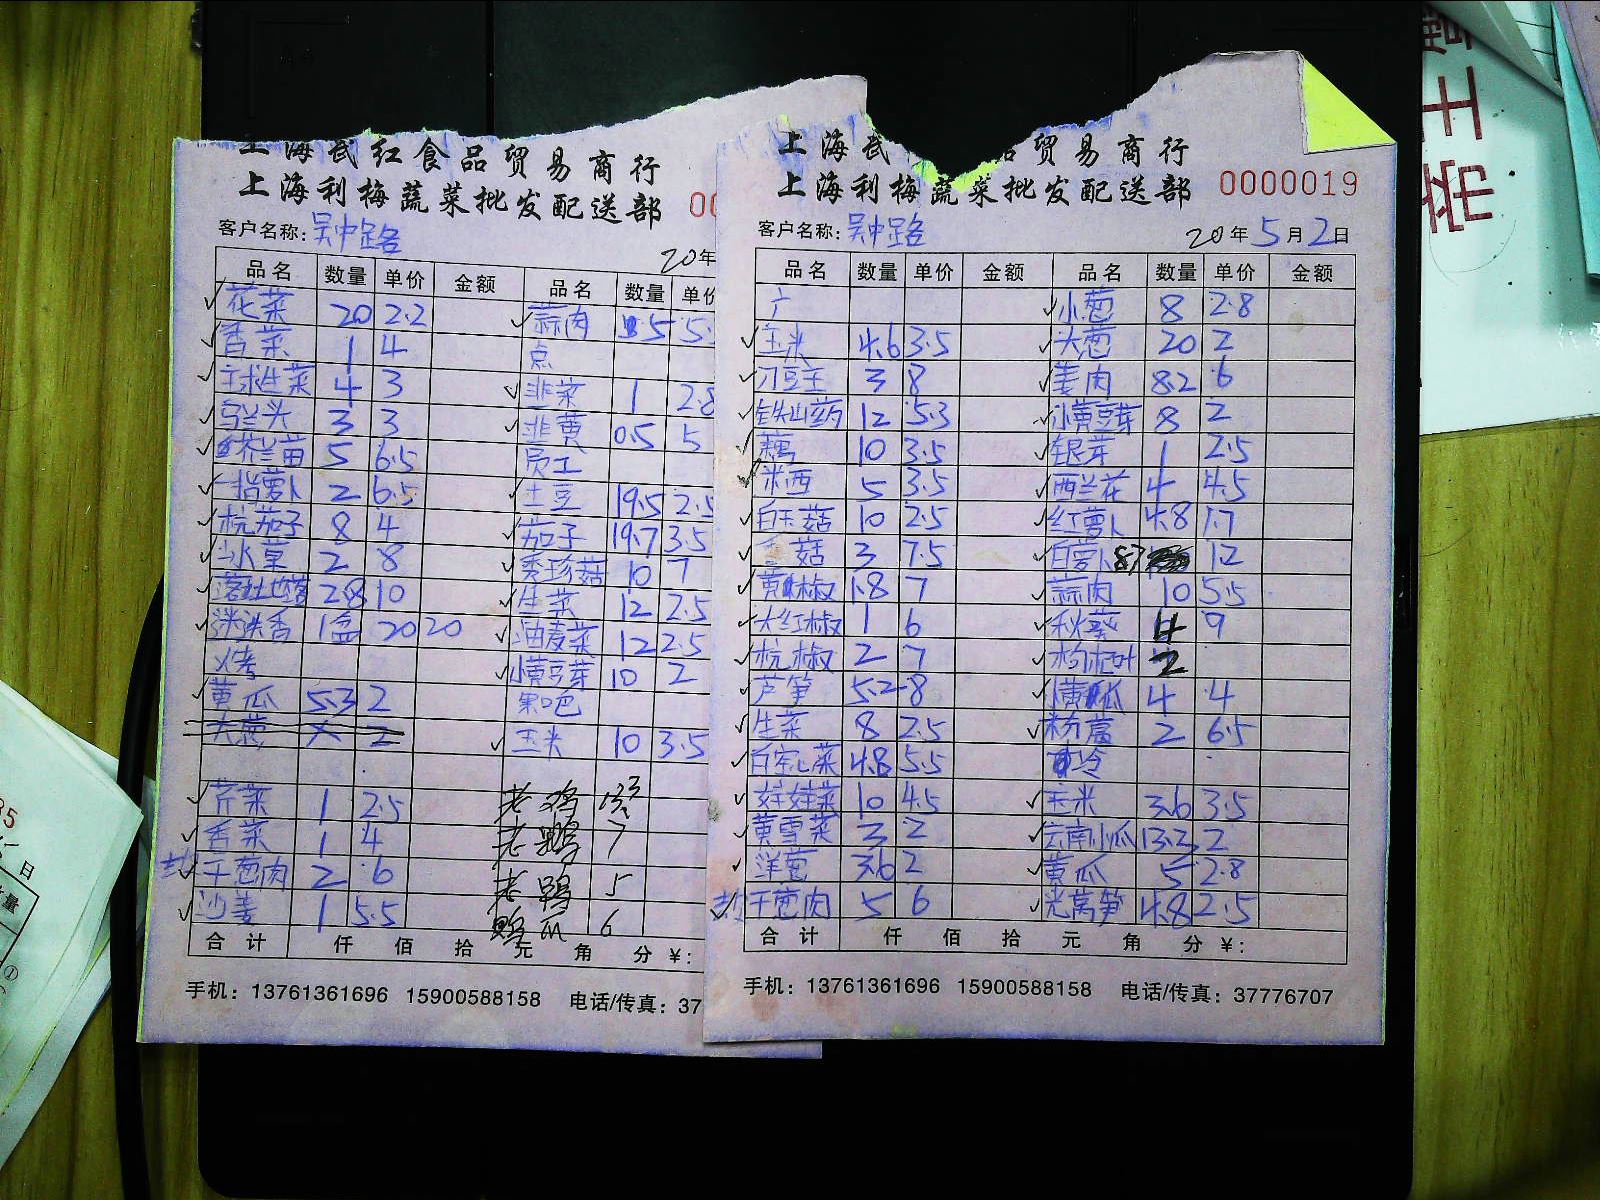 上海武红食品贸易商行
上海利梅蔬菜批发配送部 00
客户名称: 吴中路
20 年
品名 数量 单价 金额 品名 数量 单价
花菜 20 2.2 蒜肉 5 5.
香菜 1 4 点
球生菜 4 3 韭菜 1 2.8
马兰头 3 3 韭黄 0.5 5
芥兰苗 5 6.5 员工
指萝卜 2 6.5 土豆 19.5 2.5
杭茄子 8 4 茄子 19.7 3.5
冰草 2 8 秀珍菇 10 7
2.8 10 生菜 12 2.5
迷迭香 1盒 20 20 油麦菜 12 2.5
烤 小黄豆芽 10 2
黄瓜 5.3 2 果吧
大葱 2 玉米 10 3.5
芹菜 1 2.5 老鸡
香菜 1 4 老鹅 7
干葱肉 2 6 老鸭 5
沙姜 1 5.5 鹅爪 6
合计 仟 佰 拾 元 角 分 ¥:
手机: 13761361696 15900588158 电话/传真: 37
上海武 贸易商行
上海利梅蔬菜批发配送部 0000019
客户名称: 吴中路 20 年 5 月 2 日
品名 数量 单价 金额 品名 数量 单价 金额
广 小葱 8 2.8
玉米 4.6 3.5 大葱 20 2
刀豆 3 8 姜肉 8.2 6
铁山药 12 5.3 小黄豆芽 8 2
藕 10 3.5 银芽 1 2.5
米西 5 3.5 西兰花 4 4.5
白玉菇 10 2.5 红萝卜 4.8 1.7
菇 3 7.5 白萝卜 8.7 1.2
黄椒 1.8 7 蒜肉 10 5.5
大红椒 1 6 秋葵 4 9
杭椒 2 7 枸杞叶 2
芦笋 5.2 8 小黄瓜 4 4
生菜 8 2.5 粉葛 2 6.5
百家心菜 4.8 5.5 冷
娃娃菜 10 4.5 玉米 3.6 3.5
黄雪菜 3 2 云南小瓜 13.2 2
洋葱 3.6 2 黄瓜 5 2.8
干葱肉 5 6 光莴笋 4.8 2.5
合计 仟 佰 拾 元 角 分 ¥:
手机: 13761361696 15900588158 电话/传真: 37776707